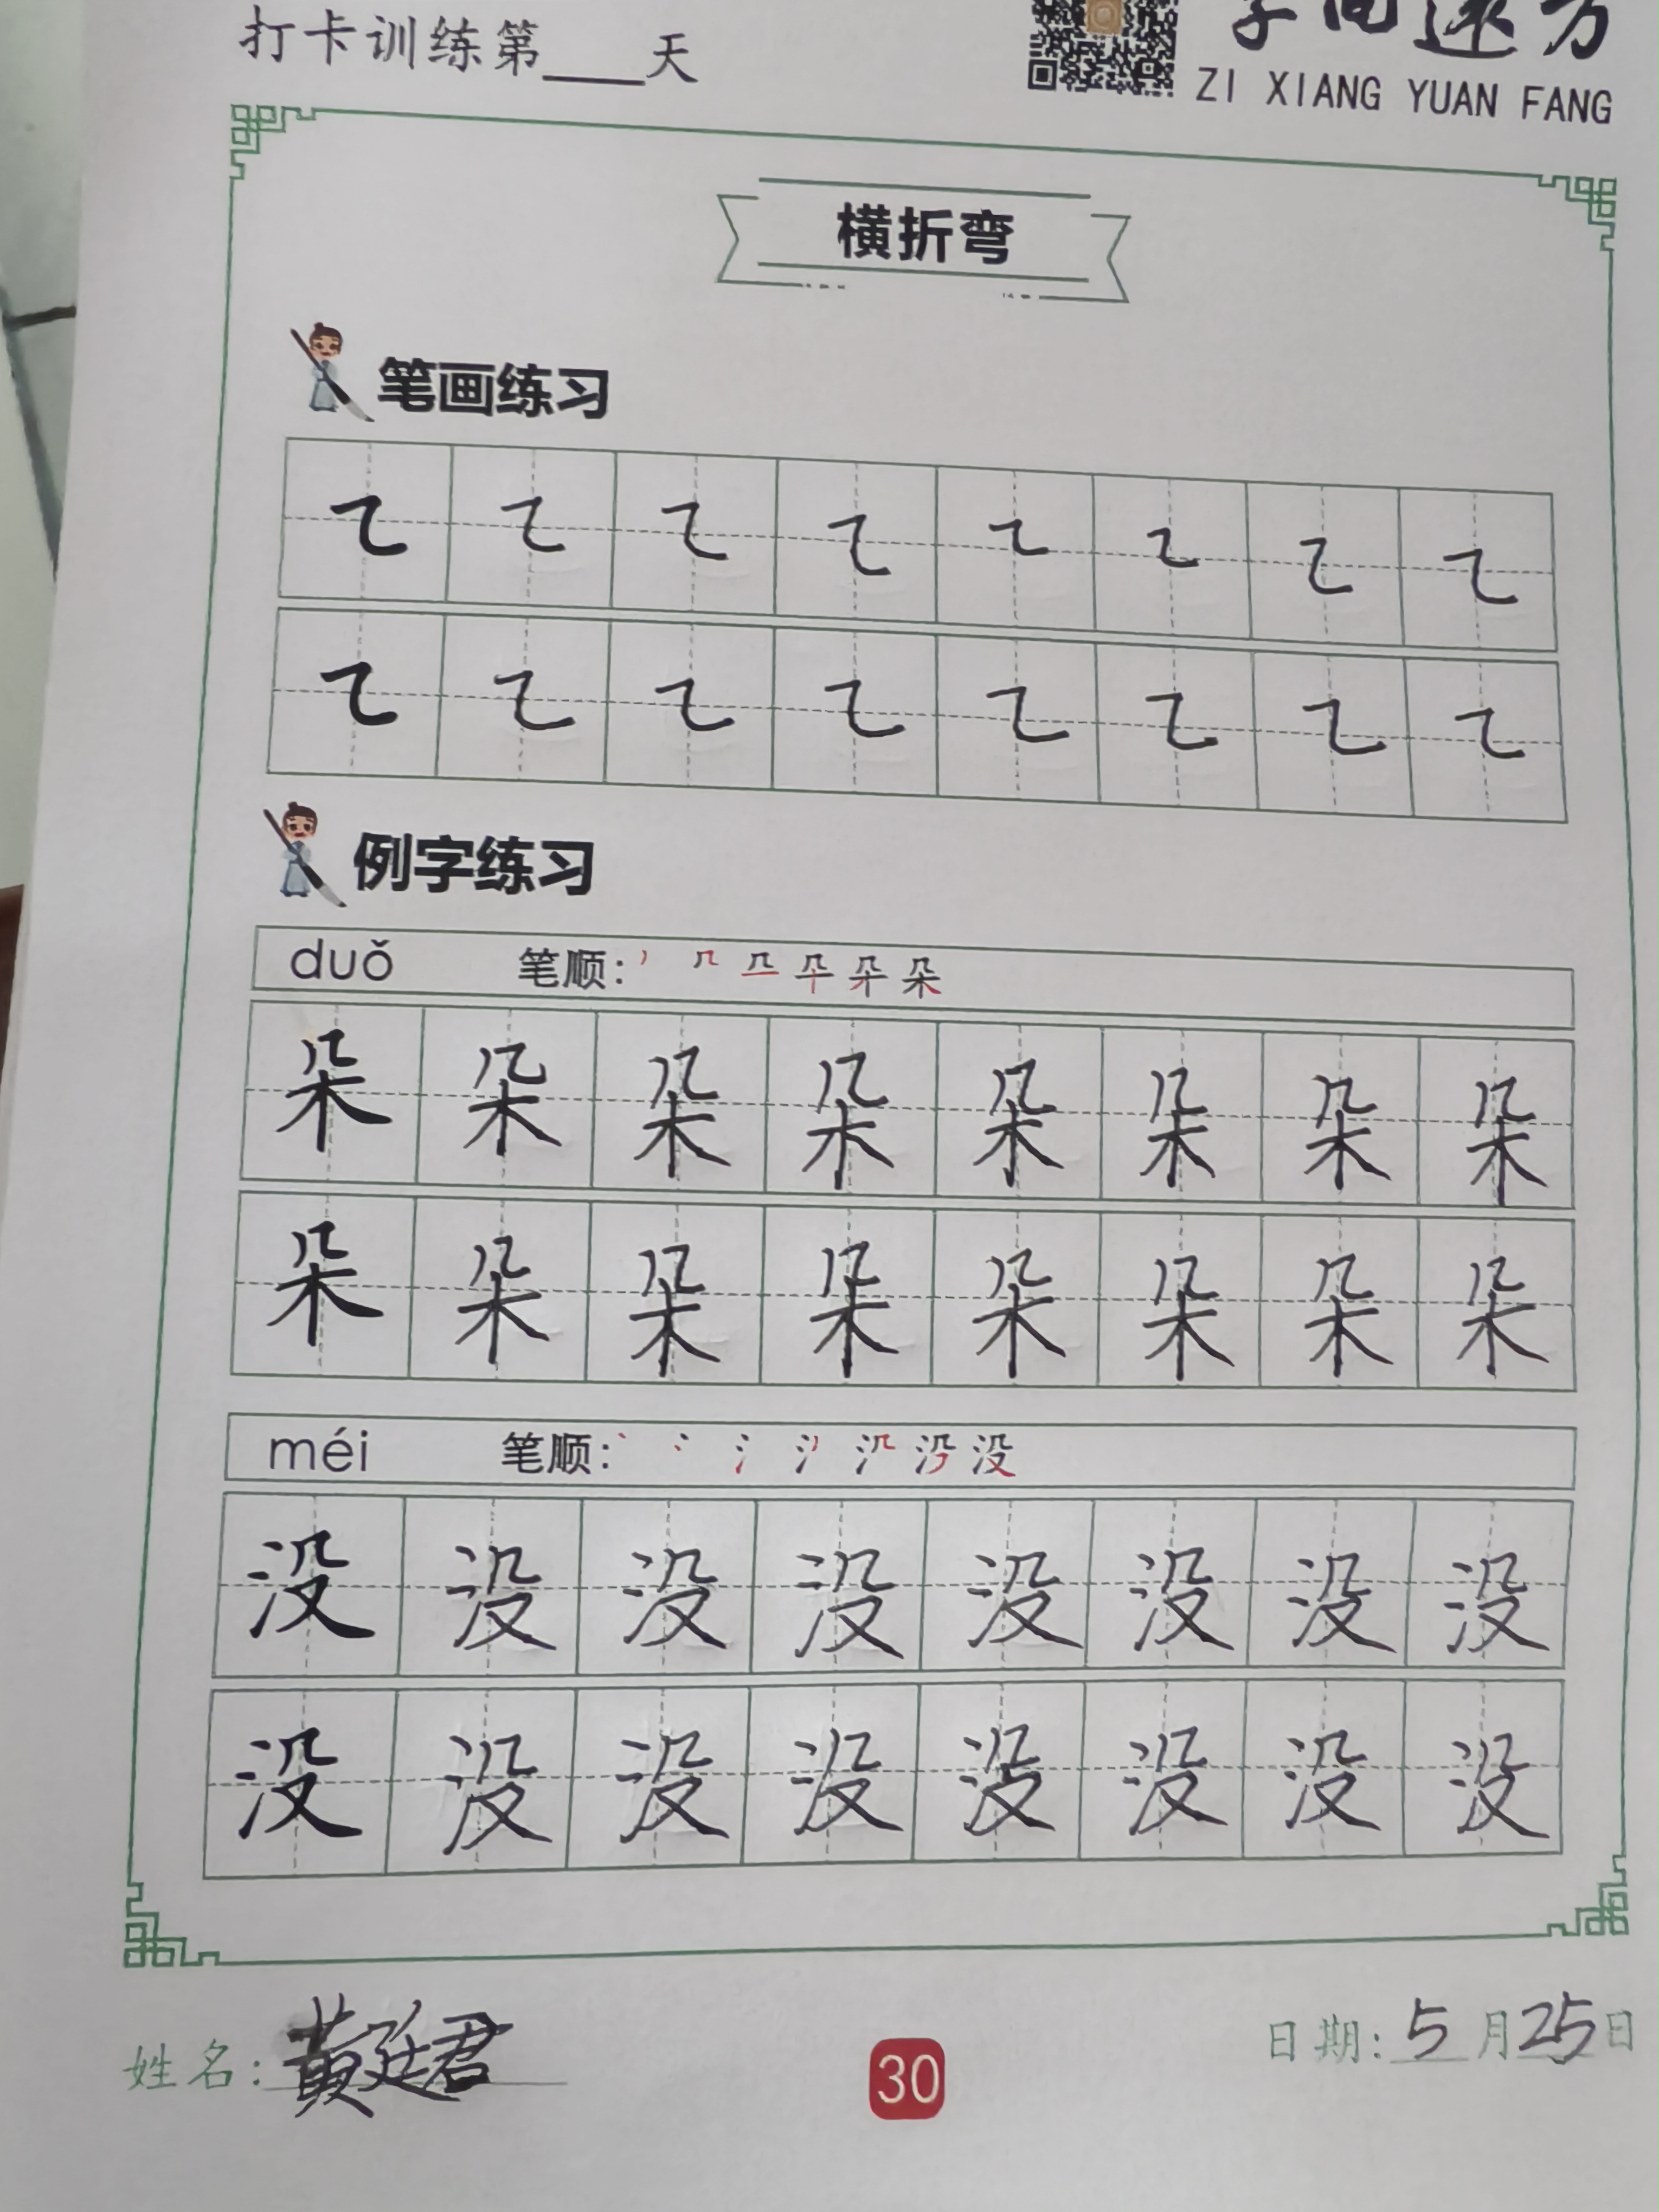 打卡训练第___天
ZI XIANG YUAN FANG
横折弯
笔画练习
例字练习
duǒ 笔顺:
朵 朵 朵 朵 朵 朵 朵 朵
朵 朵 朵 朵 朵 朵 朵 朵
méi 笔顺:
没 没 没 没 没 没 没 没
没 没 没 没 没 没 没 没
姓名:黄廷君
30
日期:5月25日